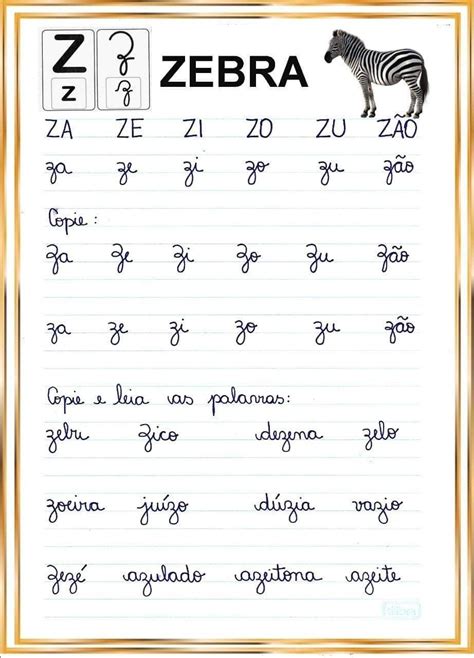 Z Z ZEBRA
z z
ZA ZE ZI ZO ZU ZÃO
za ze zi zo zu zão
Copie:
Za Ze Zi Zo Zu Zão
za ze zi zo zu zão
Copie e leia as palavras:
zebu Zico dezena zelo
zoeira juízo dúzia vazio
Zezé azulado azeitona azeite